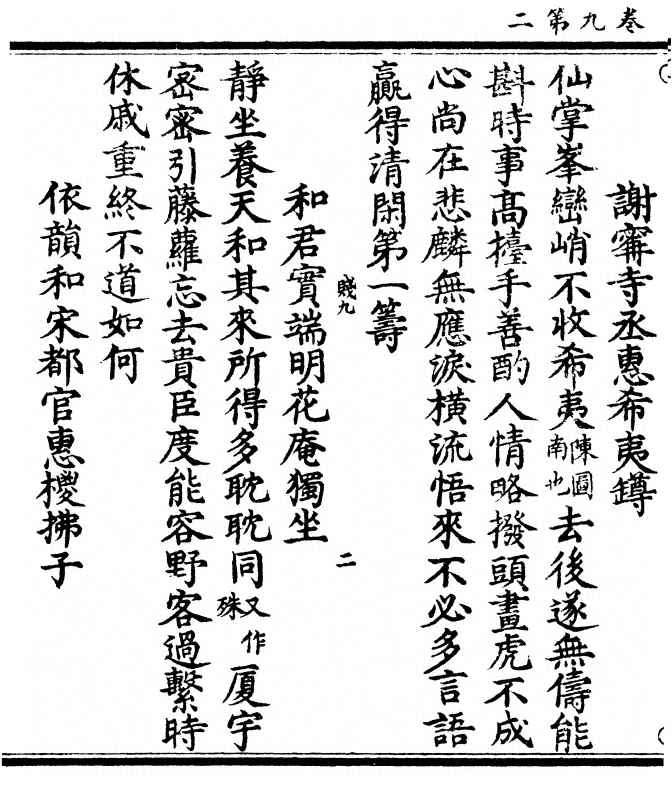 卷九第二
謝寗寺丞惠希夷罇
仙掌峯巒峭不收希夷陳圖南也去後遂無儔能
斟時事高擡手善酌人情略撥頭畫虎不成
心尚在悲麟無應淚橫流悟來不必多言語
贏得清閑第一籌
賤九
二
和君實端明花庵獨坐
靜坐養天和其來所得多耽耽同又作殊厦宇
密密引藤蘿忘去貴臣度能容野客過繫時
休戚重終不道如何
依韻和宋都官惠椶拂子